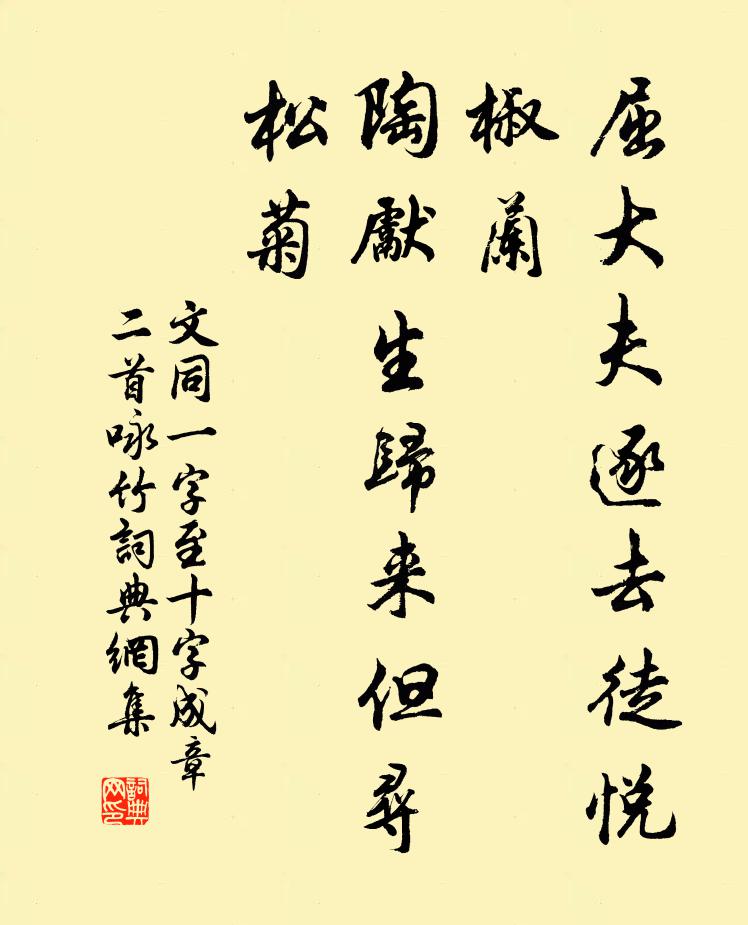 屈大夫逐去徒悦
椒蘭
陶獻生歸来但尋
松菊
文同一字至十字成章
二首咏竹詞典網集
詞典
网印